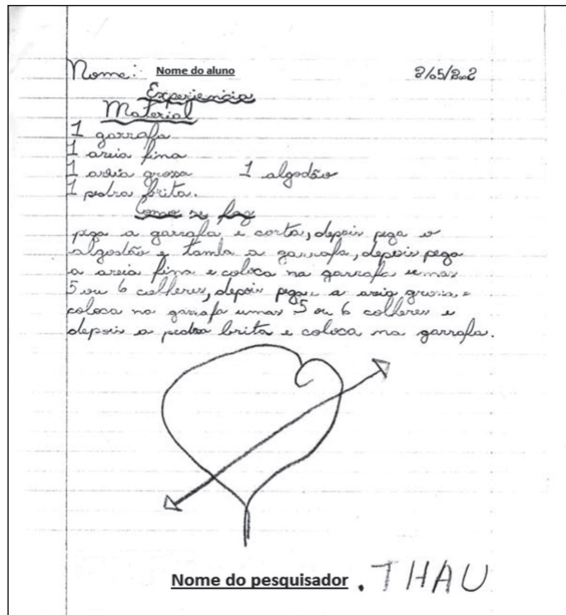 Nome: Nome do aluno 2/05/2002
Experiencia
Material
1 garrafa
1 areia fina
1 areia grossa 1 algodão
1 pedra brita.
Como se faz
pega a garrafa e corta, depois pega o
algodão e tamba a garrafa, depois pega
a areia fina e coloca na garrafa umas
5 ou 6 colheres, depois pega a areia grossa e
coloca na garrafa umas 5 ou 6 colheres e
depois a pedra brita e coloca na garrafa.
Nome do pesquisador . THAU